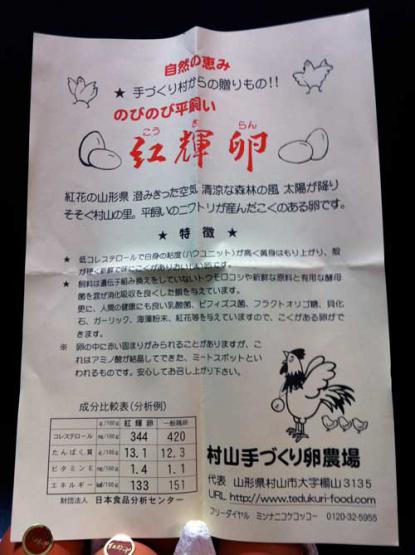 自然の恵み
★ 手づくり村からの贈りもの!!
のびのび平飼い
こう き らん
紅輝卵
紅花の山形県 澄みきった空気 清涼な森林の風 太陽が降り
そそぐ村山の里。平飼いのニワトリが産んだこくのある卵です。
★ 特徴 ★
★ 低コレステロールで白身の粘度(ハウユニット)が高く黄身はもり上がり、殻
が硬く新鮮で味にこくがありおいしい卵です。
★ 飼料は遺伝子組み換えをしていないトウモロコシや新鮮な原料と有用な酵母
菌を混ぜ消化吸収を良くした餌を与えています。
更に、人間の健康にも良い乳酸菌、ビフィズス菌、フラクトオリゴ糖、貝化
石、ガーリック、海藻粉末、紅花等を与えていますので、こくがある卵がで
きます。
※ 卵の中に赤い固まりがみられることがありますが、こ
れはアミノ酸が結晶してできた、ミートスポットとい
われるものです。安心してお召し上がり下さい。
成分比較表(分析例)
g/100g 紅輝卵 一般鶏卵
コレステロール mg/100g 344 420
たんぱく質 g/100g 13.1 12.3
ビタミンE mg/100g 1.4 1.1
エネルギー kcal/100g 133 151
財団法人 日本食品分析センター
村山手づくり卵農場
代表 山形県村山市大字楯山3135
URL http://www.tedukuri-food.com
フリーダイヤル ミンナニコケコッコー 0120-32-5955